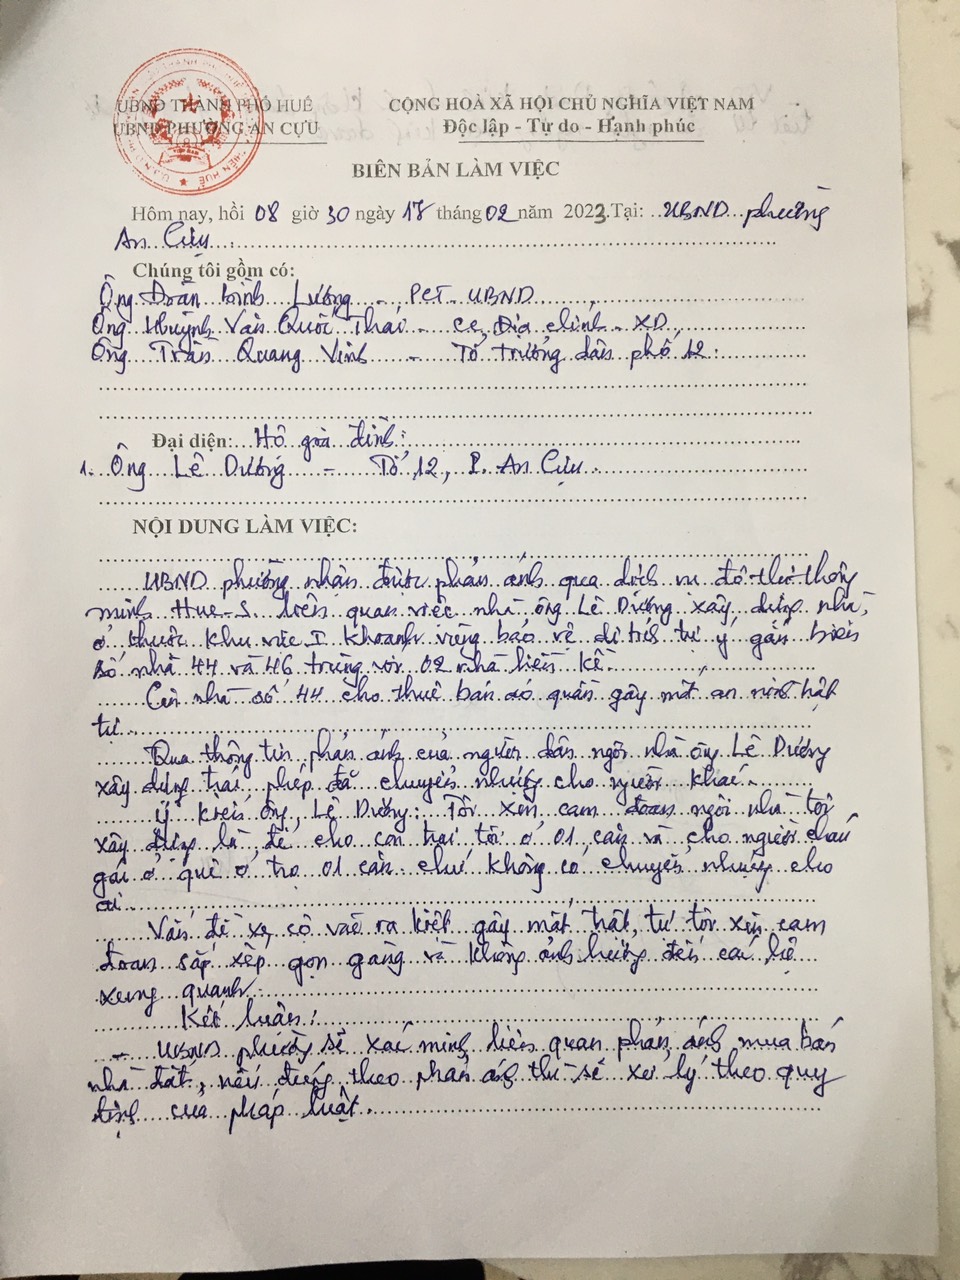 UBND THÀNH PHỐ HUẾ
UBND PHƯỜNG AN CỰU
CỘNG HOÀ XÃ HỘI CHỦ NGHĨA VIỆT NAM
Độc lập - Tự do - Hạnh phúc
BIÊN BẢN LÀM VIỆC
Hôm nay, hồi 08 giờ 30 ngày 17 tháng 02 năm 2023. Tại: UBND phường
An Cựu
Chúng tôi gồm có:
Ông Đoàn Bình Lương - PCT UBND
Ông Huỳnh Văn Quốc Thái - CC Địa chính - XD
Ông Trần Quang Vinh - Tổ trưởng dân phố 12.
Đại diện: Hộ gia đình:
1. Ông Lê Dương - Tổ 12, P. An Cựu.
NỘI DUNG LÀM VIỆC:
UBND phường nhận được phản ánh qua dịch vụ đô thị thông
minh Hue-S liên quan việc nhà ông Lê Dương xây dựng nhà
ở thuộc khu vực I Khoanh vùng bảo vệ di tích tự ý gắn biển
số nhà 44 và 46 trùng với 02 nhà liền kề.
Căn nhà số 44 cho thuê bán áo quần gây mất an ninh trật
tự.
Qua thông tin phản ánh của người dân ngôi nhà ông Lê Dương
xây dựng trái phép đã chuyển nhượng cho người khác.
Ý kiến ông Lê Dương: Tôi xin cam đoan ngôi nhà tôi
xây dựng là để cho con trai tôi ở 01 căn và cho người cháu
gái ở quê ở trọ 01 căn chứ không có chuyển nhượng cho
ai.
Vấn đề xe cộ vào ra kiệt gây mất trật tự tôi xin cam
đoan sắp xếp gọn gàng và không ảnh hưởng đến các hộ
xung quanh.
Kết luận:
- UBND phường sẽ xác minh liên quan phản ánh mua bán
nhà đất, nếu đúng theo phản ánh thì sẽ xử lý theo quy
định của pháp luật.